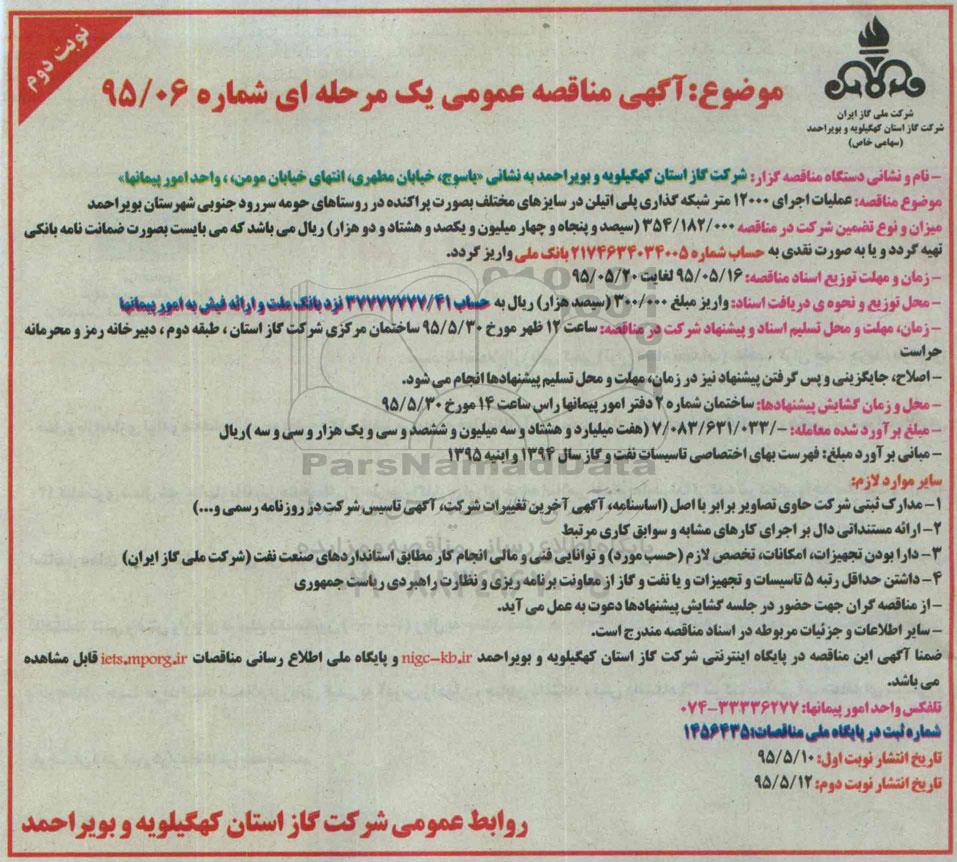 نوبت دوم
شرکت ملی گاز ایران
شرکت گاز استان کهگیلویه و بویراحمد
(سهامی خاص)
موضوع: آگهی مناقصه عمومی یک مرحله ای شماره ۹۵/۰۶
- نام و نشانی دستگاه مناقصه گزار: شرکت گاز استان کهگیلویه و بویراحمد به نشانی «یاسوج، خیابان مطهری، انتهای خیابان مومن، ، واحد امور پیمانها»
موضوع مناقصه: عملیات اجرای ۱۲۰۰۰ متر شبکه گذاری پلی اتیلن در سایزهای مختلف بصورت پراکنده در روستاهای حومه سررود جنوبی شهرستان بویراحمد
میزان و نوع تضمین شرکت در مناقصه ۳۵۴/۱۸۲/۰۰۰ (سیصد و پنجاه و چهار میلیون و یکصد و هشتاد و دو هزار) ریال می باشد که می بایست بصورت ضمانت نامه بانکی
تهیه گردد و یا به صورت نقدی به حساب شماره ۲۱۷۴۶۳۴۰۳۴۰۰۵ بانک ملی واریز گردد.
- زمان و مهلت توزیع اسناد مناقصه: ۹۵/۰۵/۱۶ لغایت ۹۵/۰۵/۲۰
- محل توزیع و نحوه ی دریافت اسناد: واریز مبلغ ۳۰۰/۰۰۰ (سیصد هزار) ریال به حساب ۳۷۷۷۷۷۷۷/۴۱ نزد بانک ملت و ارائه فیش به امور پیمانها
- زمان، مهلت و محل تسلیم اسناد و پیشنهاد شرکت در مناقصه: ساعت ۱۲ ظهر مورخ ۹۵/۵/۳۰ ساختمان مرکزی شرکت گاز استان ، طبقه دوم ، دبیرخانه رمز و محرمانه
حراست
- اصلاح، جایگزینی و پس گرفتن پیشنهاد نیز در زمان، مهلت و محل تسلیم پیشنهادها انجام می شود.
- محل و زمان گشایش پیشنهادها: ساختمان شماره ۲ دفتر امور پیمانها راس ساعت ۱۴ مورخ ۹۵/۵/۳۰
- مبلغ برآورد شده معامله: -/۷/۰۸۳/۶۳۱/۰۳۳ (هفت میلیارد و هشتاد و سه میلیون و ششصد و سی و یک هزار و سی و سه )ریال
- مبانی برآورد مبلغ: فهرست بهای اختصاصی تاسیسات نفت و گاز سال ۱۳۹۴ و ابنیه ۱۳۹۵
ParsNamadData
سایر موارد لازم:
۱- مدارک ثبتی شرکت حاوی تصاویر برابر با اصل (اساسنامه، آگهی آخرین تغییرات شرکت، آگهی تاسیس شرکت در روزنامه رسمی و...)
۲- ارائه مستنداتی دال بر اجرای کارهای مشابه و سوابق کاری مرتبط
۳- دارا بودن تجهیزات، امکانات، تخصص لازم (حسب مورد) و توانایی فنی و مالی انجام کار مطابق استانداردهای صنعت نفت (شرکت ملی گاز ایران)
۴- داشتن حداقل رتبه ۵ تاسیسات و تجهیزات و یا نفت و گاز از معاونت برنامه ریزی و نظارت راهبردی ریاست جمهوری
- از مناقصه گران جهت حضور در جلسه گشایش پیشنهادها دعوت به عمل می آید.
- سایر اطلاعات و جزئیات مربوطه در اسناد مناقصه مندرج است.
ضمنا آگهی این مناقصه در پایگاه اینترنتی شرکت گاز استان کهگیلویه و بویراحمد nigc-kb.ir و پایگاه ملی اطلاع رسانی مناقصات iets.mporg.ir قابل مشاهده
می باشد.
تلفکس واحد امور پیمانها: ۳۳۳۳۶۲۷۷-۰۷۴
شماره ثبت در پایگاه ملی مناقصات: ۱۴۵۶۴۳۵
تاریخ انتشار نوبت اول: ۹۵/۵/۱۰
تاریخ انتشار نوبت دوم: ۹۵/۵/۱۲
روابط عمومی شرکت گاز استان کهگیلویه و بویراحمد